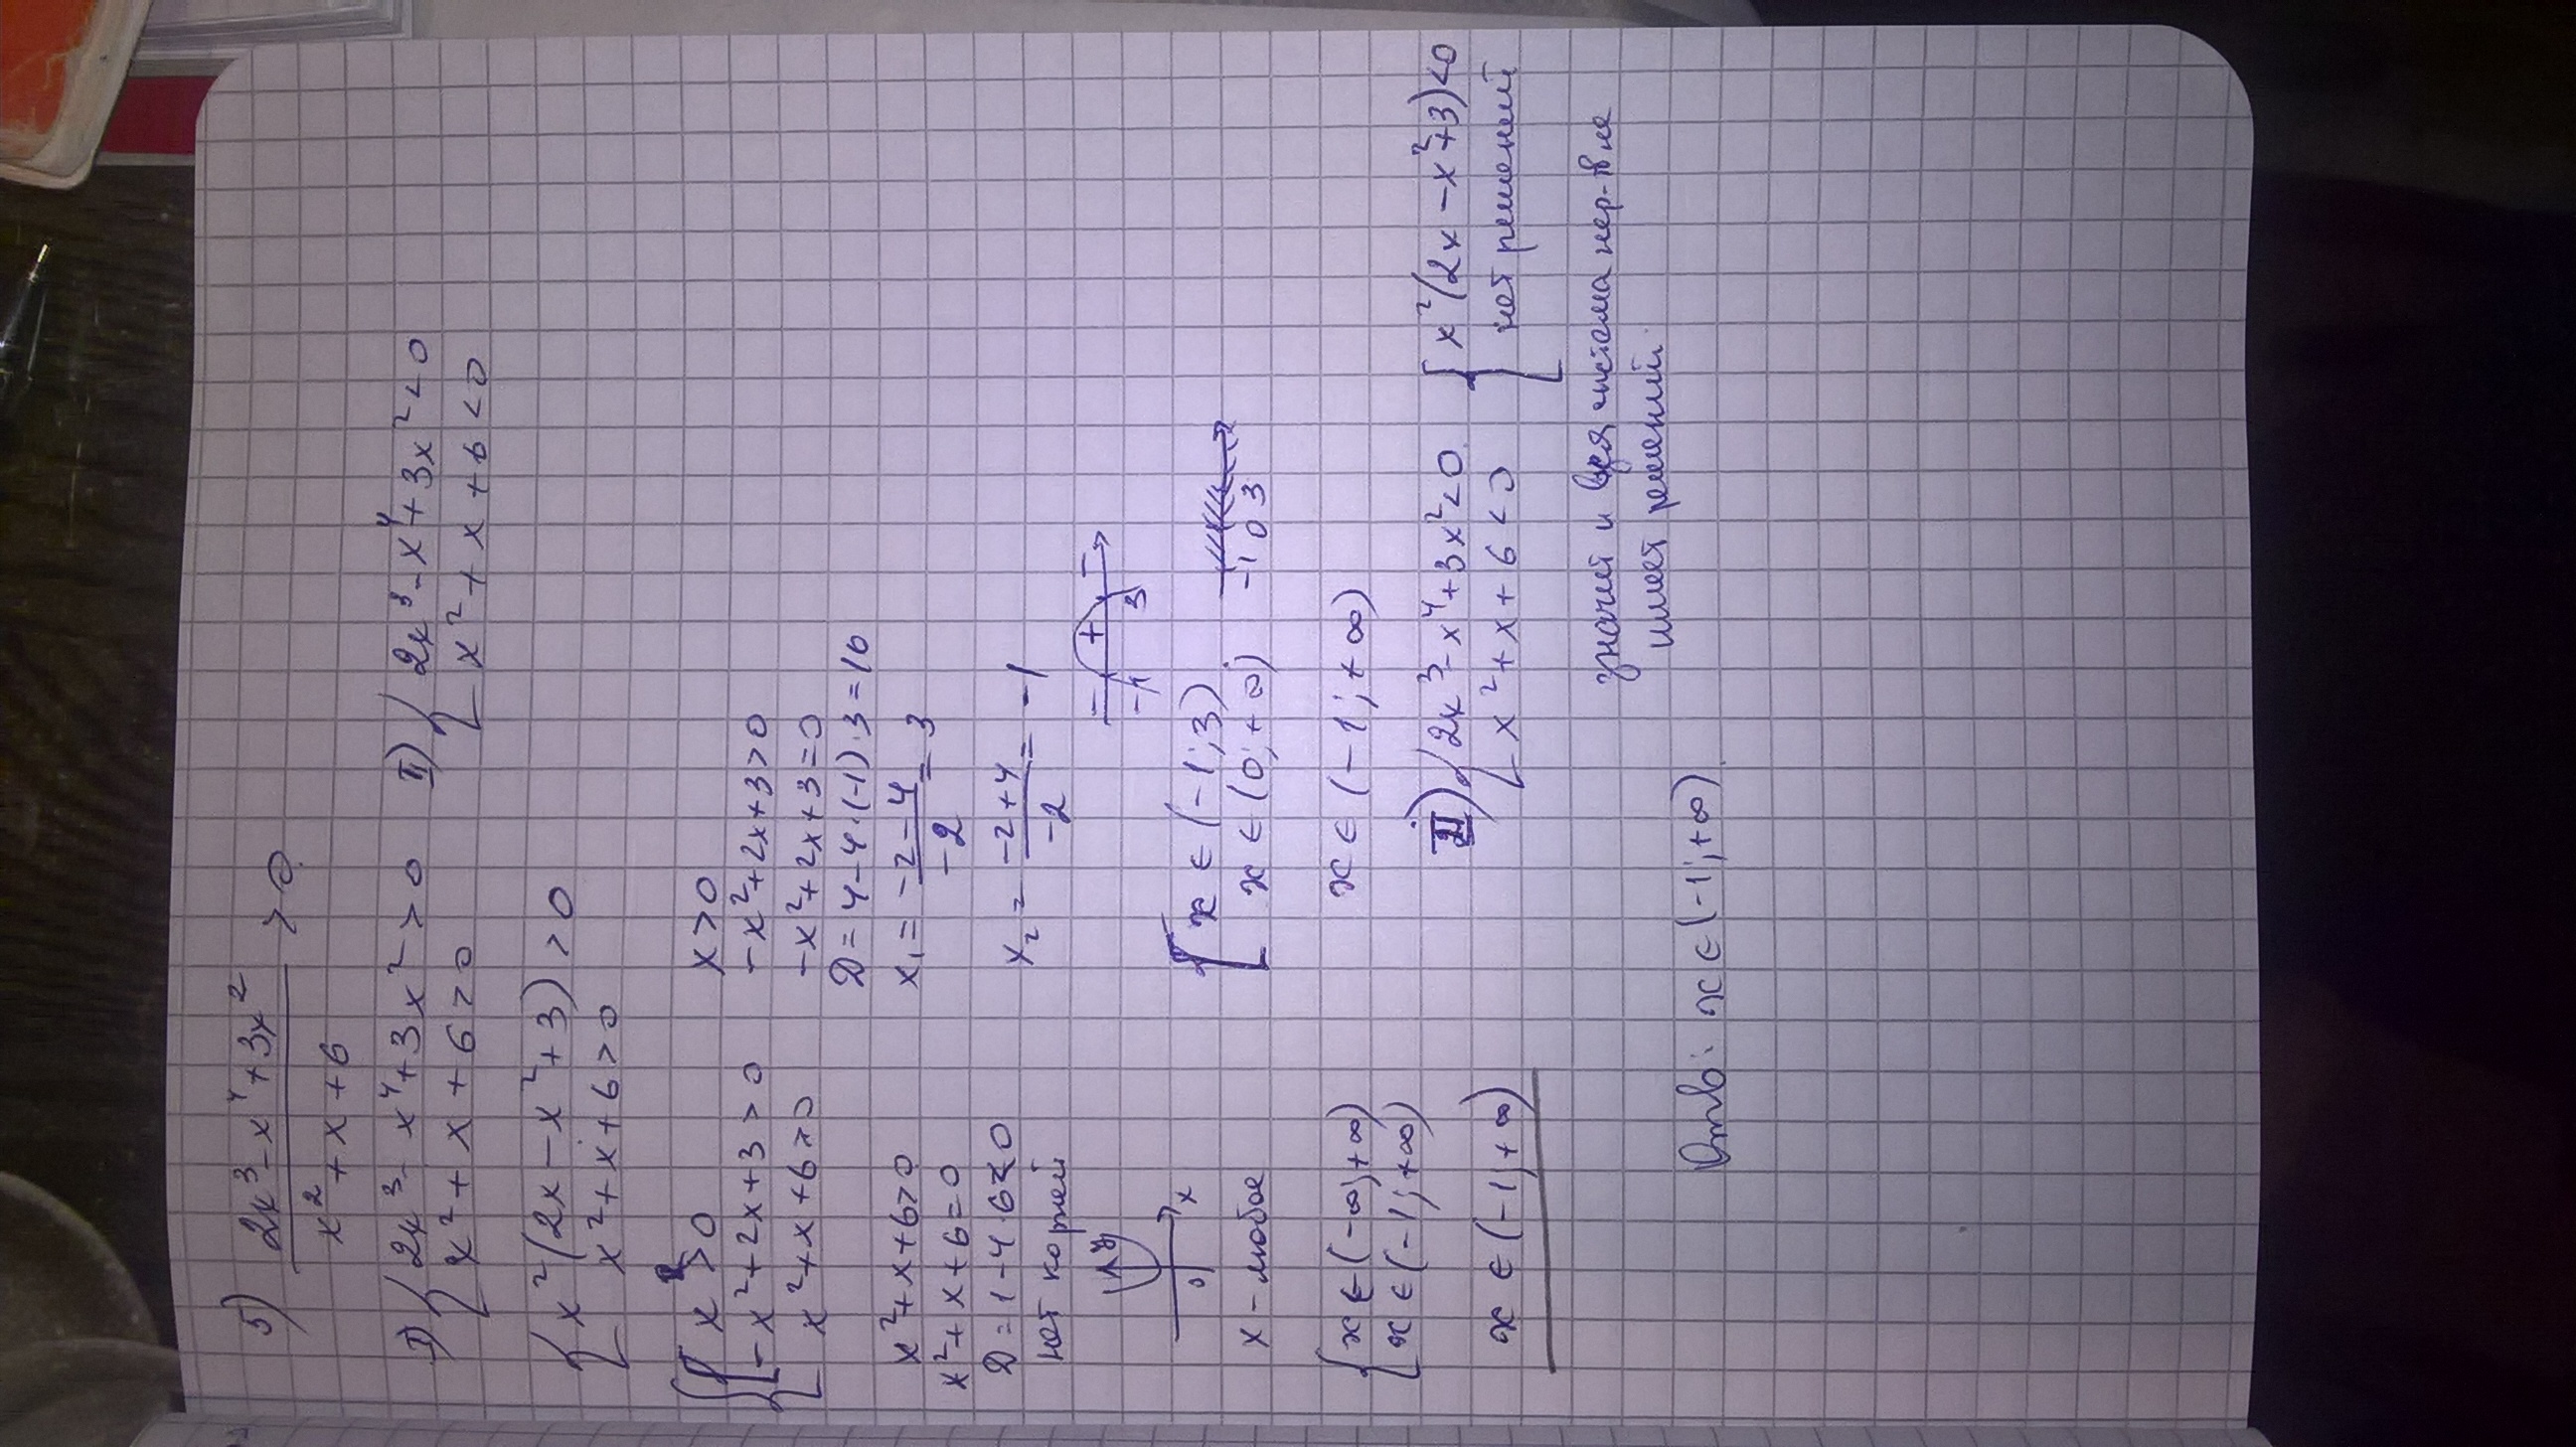 5) (2x³ - x⁴ + 3x²) / (x² + x + 6) > 0.
I) { 2x³ - x⁴ + 3x² > 0
x² + x + 6 > 0
II) { 2x³ - x⁴ + 3x² < 0
x² + x + 6 < 0
{ x²(2x - x² + 3) > 0
x² + x + 6 > 0
x > 0
-x² + 2x + 3 > 0
x² + x + 6 > 0
x² + x + 6 > 0
x² + x + 6 = 0
D = 1 - 4·6 < 0
нет корней
0 x
x - любое
{ x ∈ (-∞; +∞)
x ∈ (-1; +∞)
x ∈ (-1; +∞)
x > 0
-x² + 2x + 3 > 0
-x² + 2x + 3 = 0
D = 4 - 4·(-1)·3 = 16
x₁ = (-2 - 4) / -2 = 3
x₂ = (-2 + 4) / -2 = -1
- + -
-1 3
[ x ∈ (-1; 3)
x ∈ (0; +∞)
-1 0 3
x ∈ (-1; +∞)
II) { 2x³ - x⁴ + 3x² < 0
x² + x + 6 < 0
{ x²(2x - x² + 3) < 0
нет решений
значит и вся система нер-в не
имеет решений.
Ответ: x ∈ (-1; +∞).